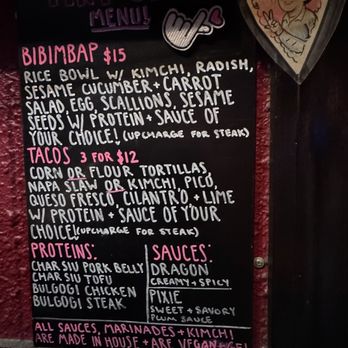 MENU!
BIBIMBAP $15
RICE BOWL W/ KIMCHI, RADISH,
SESAME CUCUMBER + CARROT
SALAD, EGG, SCALLIONS, SESAME
SEEDS W/ PROTEIN + SAUCE OF
YOUR CHOICE! (UPCHARGE FOR STEAK)
TACOS 3 FOR $12
CORN OR FLOUR TORTILLAS,
NAPA SLAW OR KIMCHI, PICO,
QUESO FRESCO, CILANTRO + LIME
W/ PROTEIN + SAUCE OF YOUR
CHOICE! (UPCHARGE FOR STEAK)
PROTEINS:
CHAR SIU PORK BELLY
CHAR SIU TOFU
BULGOGI CHICKEN
BULGOGI STEAK
SAUCES:
DRAGON
CREAMY + SPICY
PIXIE
SWEET + SAVORY
PLUM SAUCE
ALL SAUCES, MARINADES + KIMCHI
ARE MADE IN HOUSE + ARE VEGAN